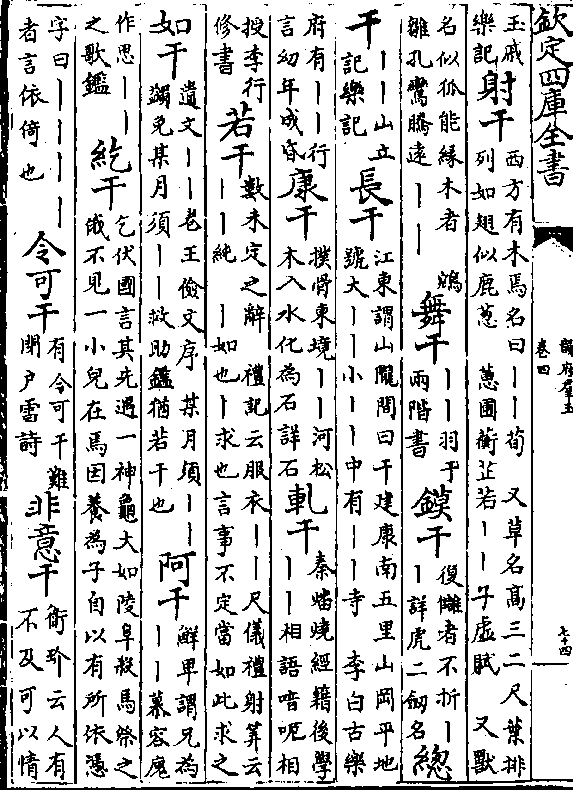 欽定四庫全書
韻府群玉
卷四
七十四
玉戚
樂記
射干
西方有木焉名曰丨丨荀 又草名高三二尺葉排
列如翅似鹿葱 蕙圃蘅芷若丨丨子虛賦 又獸
名似狐能緣木者 鵷
雛孔鸞騰遠丨丨
舞干
丨丨羽于
兩階書
鏌干
復讎者不折丨
丨詳虎二劔名
總
干
丨丨山立
記樂記
長干
江東謂山隴間曰干建康南五里山岡平地
號大丨丨小丨丨中有丨丨寺 李白古樂
府有丨丨行
言幼年成昏
康干
撲骨東境丨丨河松
木入水化為石詳石
軋干
秦燔燒經籍後學
丨丨相語喑呃相
授李行
修書
若干
數未定之辭 禮記云服衣丨丨尺儀禮射筭云
丨丨純 丨如也丨求也言事不定當如此求之
如干
遺文丨丨老王儉文序 某月須丨丨
蠲免某月須丨丨救助鑑猶若干也
阿干
鮮卑謂兄為
丨丨慕容廆
作思丨丨
之歌鑑
紇干
乞伏國言其先遇一神龜大如陵阜殺馬祭之
俄不見一小兒在焉因養為子自以有所依憑
字曰丨丨丨丨
者言依倚也
令可干
有令可干難
閉户雪詩
非意干
衛玠云人有
不及可以情